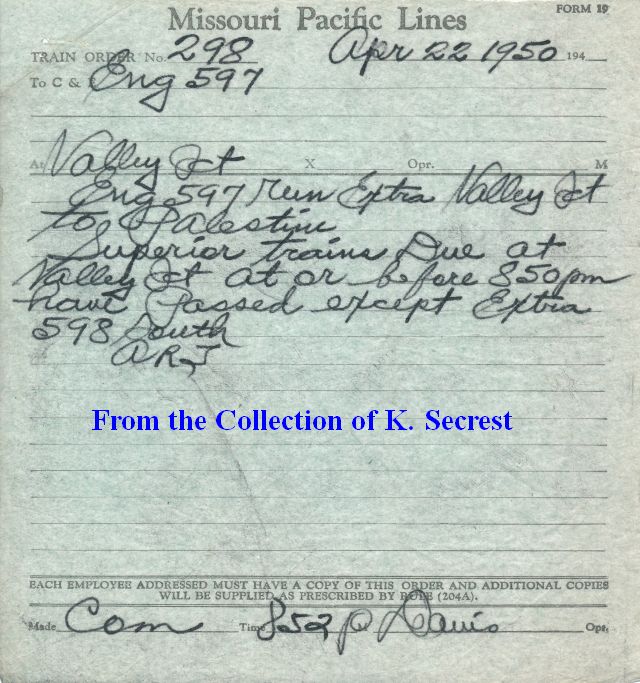 FORM 19
Missouri Pacific Lines
TRAIN ORDER No. 298 Apr 22 1950 194
To C & Eng 597
At Valley Jct X Opr. M
Eng 597 run Extra Valley Jct
to Palestine
Superior trains Due at
Valley Jct at or before 850 pm
have passed except Extra
598 South
ARJ
From the Collection of K. Secrest
EACH EMPLOYEE ADDRESSED MUST HAVE A COPY OF THIS ORDER AND ADDITIONAL COPIES
WILL BE SUPPLIED AS PRESCRIBED BY RULE (204A).
Made Com Time 852 p Davis Opr.